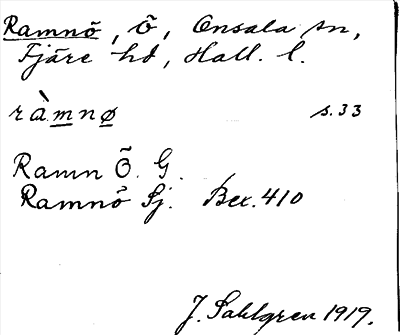 Ramnö, Ö, Onsala sn,
Fjäre hd, Hall. l.
ràmnø s.33
Ramn Ö. G.
Ramnö Sj. Bex. 410
J. Sahlgren 1919.